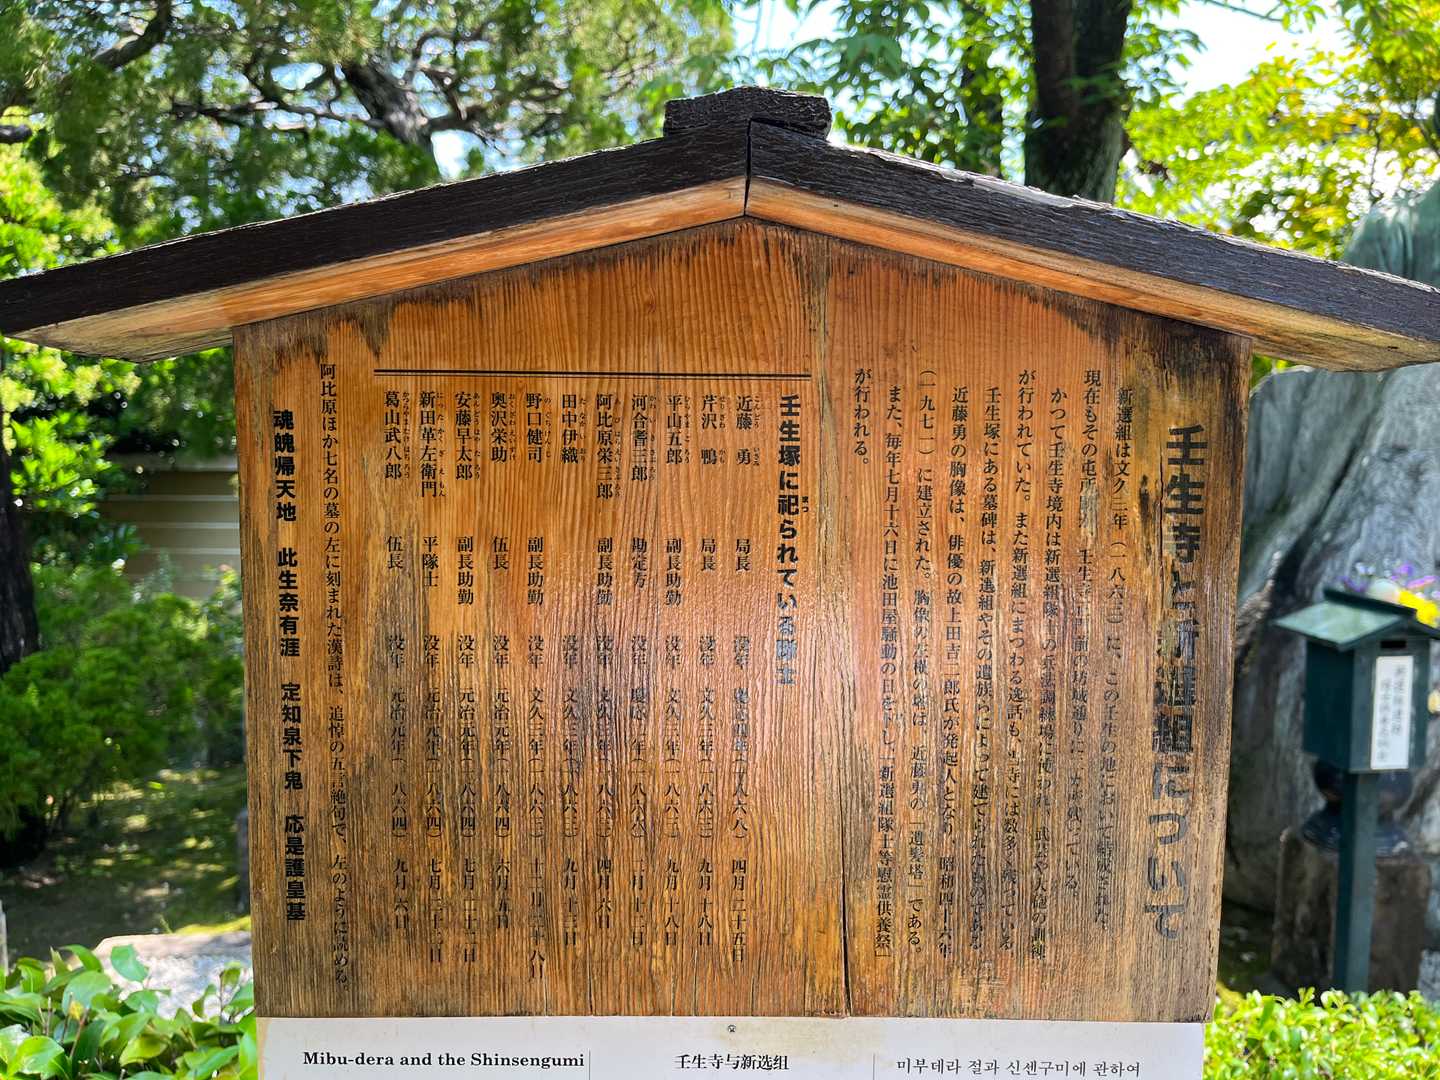 壬生寺と新選組について
新選組は文久三年(一八六三)に、この壬生の地において結成された。
現在もその屯所 壬生寺 前の坊城通りに 残っている。
かつて壬生寺境内は新選組隊士の兵法調練場に使われ、武芸や大砲の訓練
が行われていた。また新選組にまつわる逸話も、当寺には数多く残っている。
壬生塚にある墓碑は、新選組やその遺族らによって建てられたものである。
近藤勇の胸像は、俳優の故上田吉二郎氏が発起人となり、昭和四十六年
(一九七一)に建立された。胸像の左横の塔は、近藤勇の「遺髪塔」である。
また、毎年七月十六日に池田屋騒動の日を卜し、新選組隊士等慰霊供養祭
が行われる。
壬生塚に祀られている隊士
近藤 勇 局長 没年 四月二十五日
芹沢 鴨 局長 没年 文久三年(一八六三) 九月十八日
平山五郎 副長助勤 没年 文久三年(一八六三) 九月十八日
河合耆三郎 勘定方 没年 慶応二年(一八六六) 二月十二日
阿比原栄三郎 副長助勤 没年 文久三年(一八六三) 四月六日
田中伊織 没年 文久三年(一八六三) 九月十三日
野口健司 副長助勤 没年 文久三年(一八六三) 十二月二十八日
奥沢栄助 伍長 没年 元治元年(一八六四) 六月五日
安藤早太郎 副長助勤 没年 元治元年(一八六四) 七月二十二日
新田革左衛門 平隊士 没年 元治元年(一八六四) 七月二十二日
葛山武八郎 伍長 没年 元治元年(一八六四) 九月六日
阿比原ほか七名の墓の左に刻まれた漢詩は、追悼の五言絶句で、左のように読める。
魂魄帰天地 此生奈有涯 定知泉下鬼 応是護皇基
Mibu-dera and the Shinsengumi
壬生寺与新选组
미부데라 절과 신센구미에 관하여